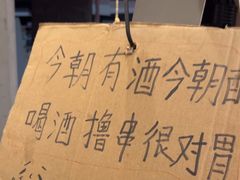 今朝有酒今朝
喝酒撸串很对胃